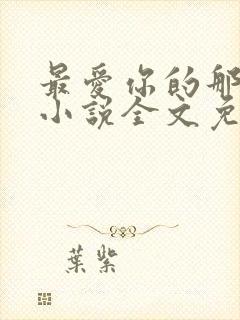 最愛你的那
小說全文免
葉紫